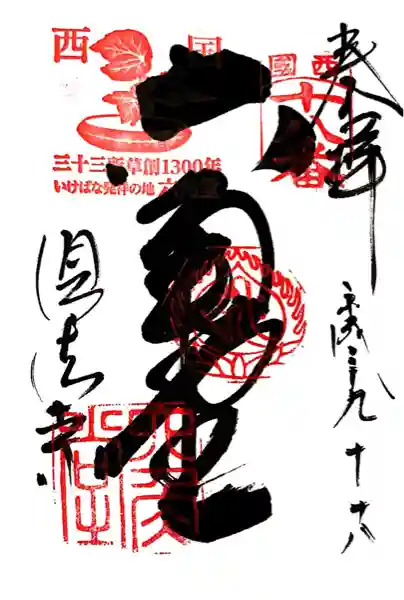 奉拝
西國
十八番
西国
三十三所草創1300年
いけばな発祥の地 六
六角堂
平成二十九 十
頂法寺
六角堂